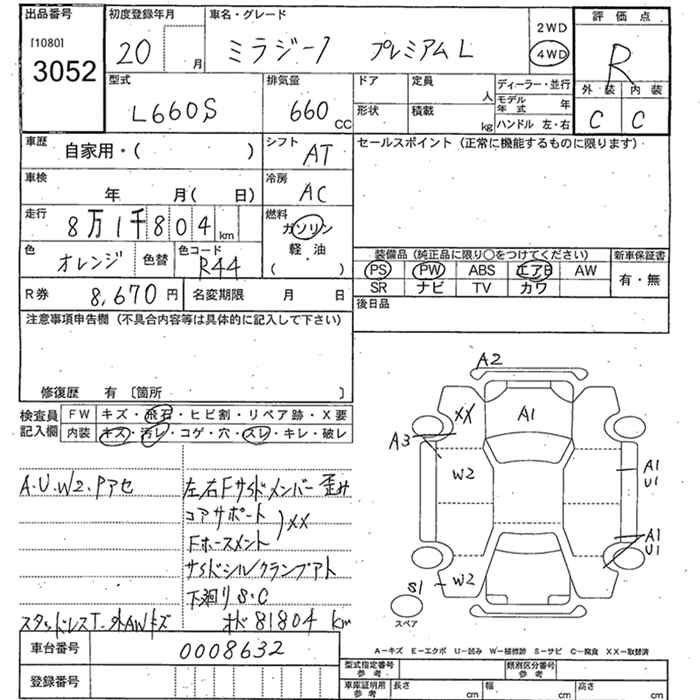 出品番号
[1080]
3052
初度登録年月
20 月
車名・グレード
ミラジーノ プレミアムL
2WD
4WD
評価点
R
外装 内装
C C
型式
L660S
排気量
660 CC
ドア
定員
人
形状
積載
kg
ディーラー・並行
モデル年式 年
ハンドル 左・右
車歴
自家用・( )
シフト
AT
セールスポイント (正常に機能するものに限ります)
車検
年 月( 日)
冷房
AC
走行
8万1千804 km
燃料
ガソリン
軽・油
( ・ )
色
オレンジ
色替
色コード
R44
装備品 (純正品に限り○をつけてください)
新車保証書
PS PW ABS エアB AW
有・無
SR ナビ TV カワ
R券
8,670円
名変期限 月 日
後日品
注意事項申告欄 (不具合内容等は具体的に記入して下さい)
修復歴 有 〔箇所 〕
検査員記入欄
FW キズ・飛石・ヒビ割・リペア跡・X要
内装 キズ・汚レ・コゲ・穴・スレ・キレ・破レ
A.U.W2.Pアセ
左右Fサイドメンバー歪み
コアサポート
Fホースメント
)XX
サイドシルクランプアト
下廻りS・C
スタッドレスT.外AWキズ
オド 81804 km
A2
XX
A1
A3
W2
A1
U1
A1
U1
S1
W2
スペア
A−キズ E−エクボ U−凹み W−補修跡 S−サビ C−腐食 XX−交換済
車台番号
0008632
登録番号
型式指定番号
参考
類別区分番号
参考
車庫証明用
参考
長さ cm
幅 cm
高さ cm